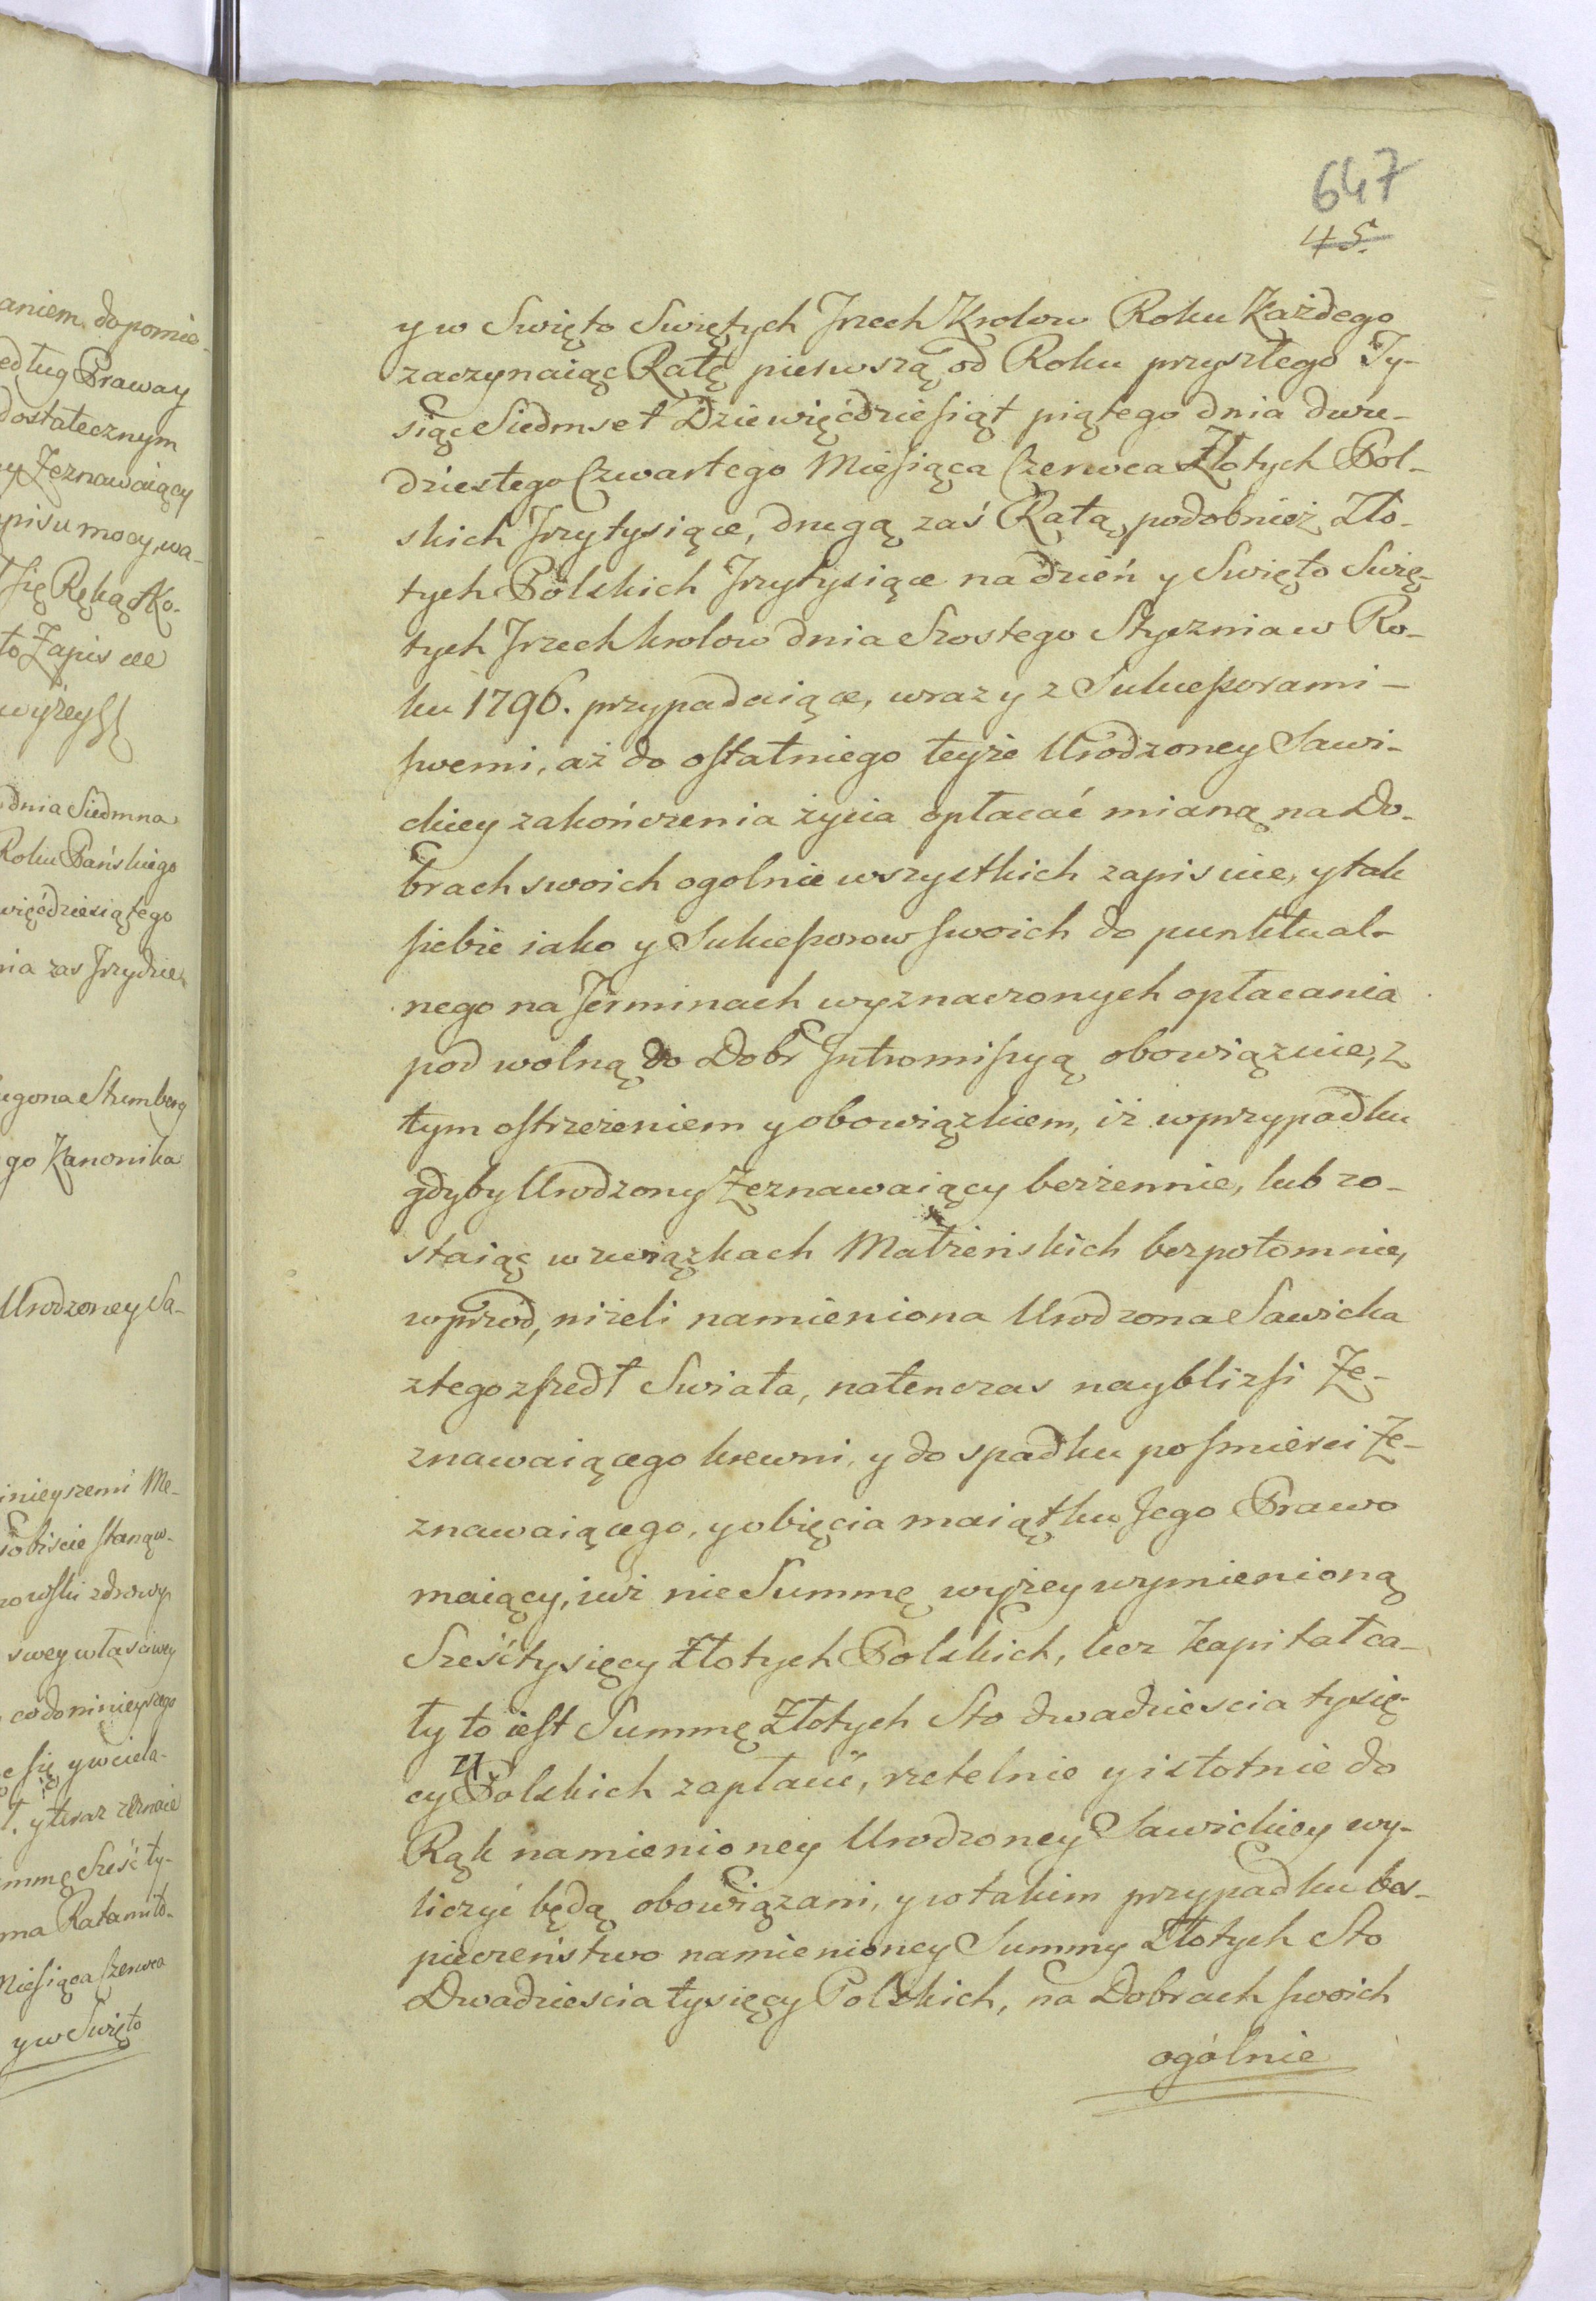 aniem dopomie-
edług Praw ay
dostatecznym
y Zeznawaiący
pisu mocy, wa-
się Ręką sko-
to Zapis ecc
wyżey
dnia Siedmna
Roku Pańskiego
więćdziesiątego
nia zas Trzydzie
go Kanonika
Urodzoney Sa-
inieyszemi Me-
sobiście stanąw-
zowski zdrowy
swey własciwey
co do ninieyszego
c się y wciela-
t. y teraz zeznaie
mmę Sześć ty-
ma Ratami to-
Miesiąca Czerwca
y w Swięto
647
45.
y w Swięto Swiętych Trzech Krolow Roku Każdego
zaczynaiąc Ratę pierwszą od Roku przyszłego Ty-
siąc Siedmset Dziewięćdziesiąt piątego dnia dwu-
dziestego Czwartego Miesiąca Czerwca Złotych Pol-
skich Trzytysiące, drugą zaś Ratą podobnież Zło-
tych Polskich Trzytysiące na dzień y Swięto Swię-
tych Trzech krolow dnia Szostego Stycznia w Ro-
ku 1796. przypadaiące, wraz y z Sukcessorami -
swemi, aż do ostatniego teyże Urodzoney Sawi-
ckiey zakończenia życia opłacać mianą na Do-
brach swoich ogolnie wszystkich zapisuie, y tak
siebie iako y Sukcessorow swoich do punktual-
nego na Terminach wyznaczonych opłacania
pod wolną do Dobr Intromissyą obowiązuie, z
tym ostrzeżeniem y obowiązkiem, iż w przypadku
gdyby Urodzony Zeznawaiący bezżennie, lub zo-
staiąc w związkach Małżeńskich bezpotomnie,
wprzod, niżeli namieniona Urodzona Sawicka
z tego zszedł Swiata, natenczas nayblizsi Ze-
znawaiącego krewni, y do spadku po smierci Ze-
znawaiącego, y obięcia maiątku Jego Prawo
maiący, iuż nie Summę wyżey wymienioną
Sześćtysięcy Złotych Polskich, lecz Kapitał ca-
ły to iest Summę Złotych Sto dwadziescia tysię-
cy Zł Polskich zapłacić, rzetelnie y istotnie do
Rąk namienioney Urodzoney Sawickiey wy-
liczyć będą obowiązani, y w takim przypadku bes-
pieczeństwo namienioney Summy Złotych Sto
Dwadziescia tysięcy Polskich, na Dobrach swoich
ogólnie